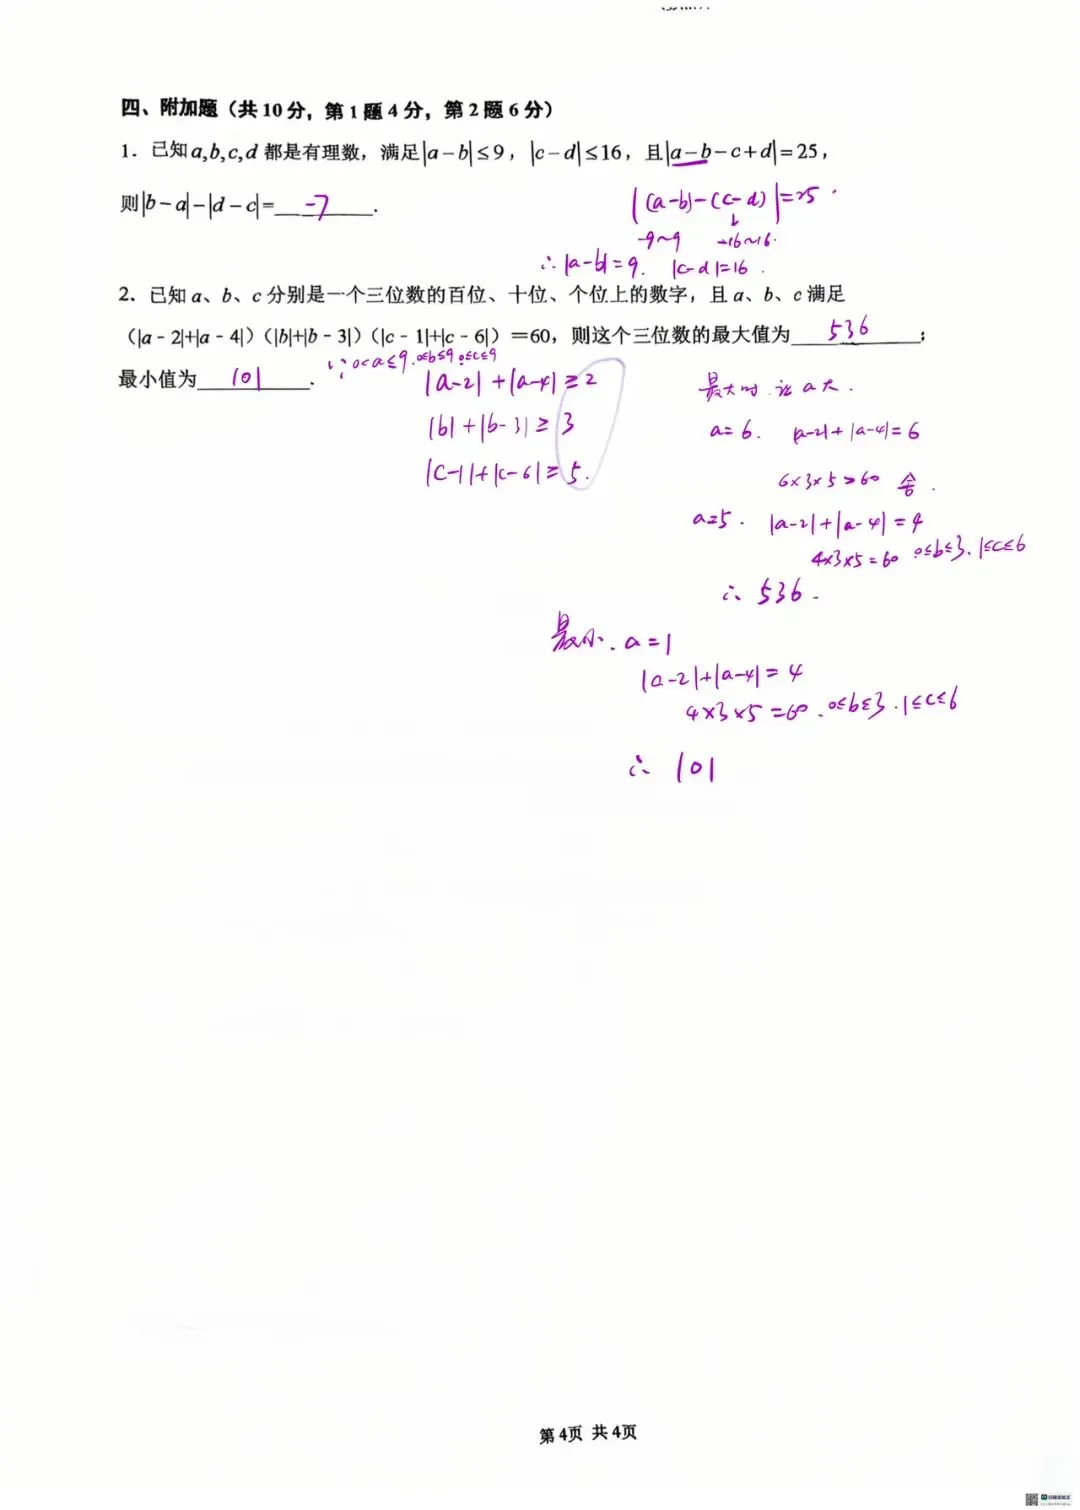 四、附加题（共10分，第1题4分，第2题6分）
1．已知a,b,c,d 都是有理数，满足|a－b|≤9，|c－d|≤16，且|a－b－c+d|=25，
则|b－a|－|d－c|= -7 .
|(a-b)-(c-d)|=25
-9~9 -16~16.
∴|a-b|=9. |c-d|=16.
2．已知 a、b、c 分别是一个三位数的百位、十位、个位上的数字，且 a、b、c 满足
（|a﹣2|+|a﹣4|）（|b|+|b﹣3|）（|c﹣1|+|c﹣6|）＝60，则这个三位数的最大值为 536 ；
最小值为 101 .
∵0<a≤9.0≤b≤9 0≤c≤9
|a-2|+|a-4|≥2
|b|+|b-3|≥3
|c-1|+|c-6|≥5.
最大时.让a大.
a=6. |a-2|+|a-4|=6
6×3×5>60 舍.
a=5. |a-2|+|a-4|=4
4×3×5=60 0≤b≤3.1≤c≤6
∴ 536.
最小.a=1
|a-2|+|a-4|=4
4×3×5=60.0≤b≤3.1≤c≤6
∴ 101
第4页 共4页